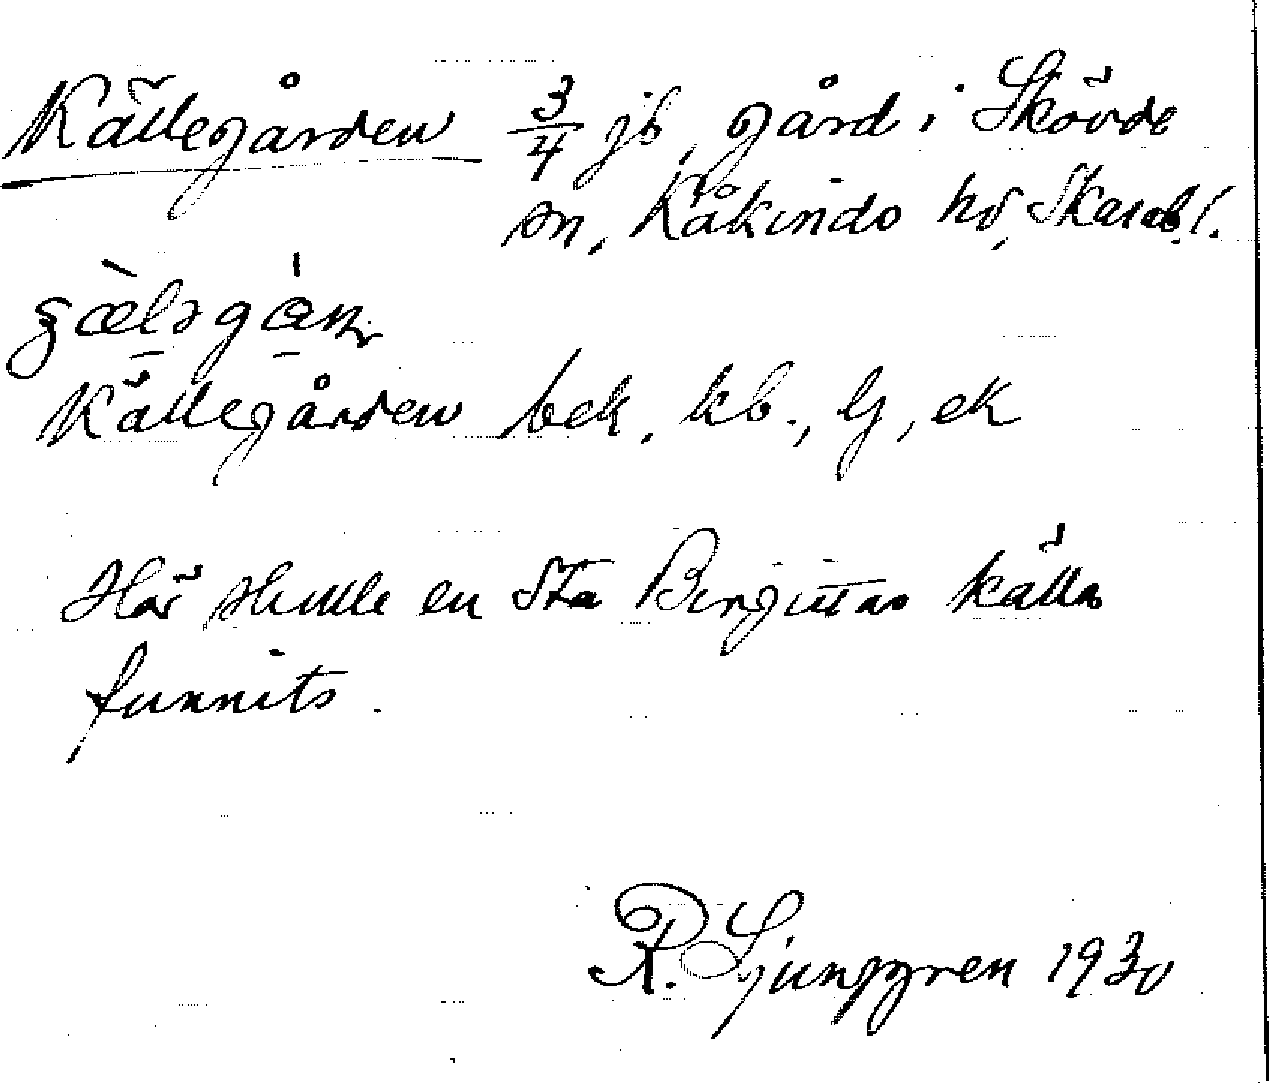 Källegården 3/4 jb, gård i Skövde
sn, Kåkinds hd, Skarab. l.
Källegården bek, kb., lj, ek
Här skulle en Sta Birgittas källa
funnits.
R. Ljunggren 1930